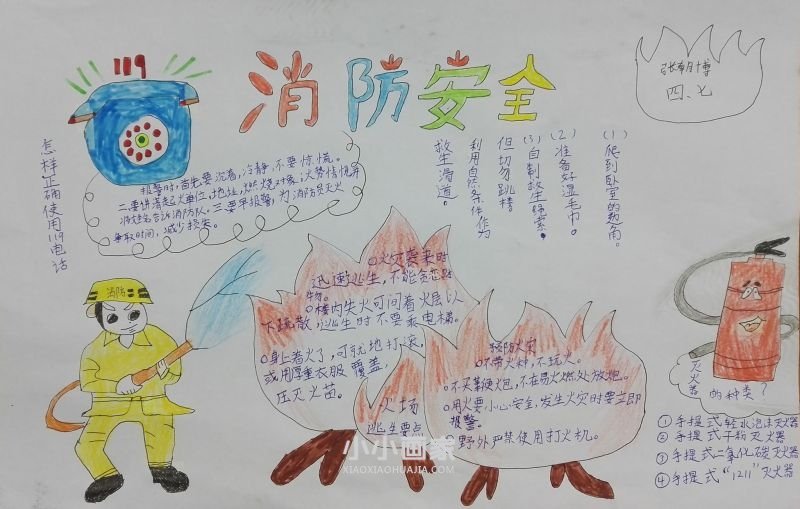 119
消防安全
张朝博
四、七
怎样正确使用119电话
报警时,首先要沉着,冷静,不要惊慌。
二要讲清起火单位,地址,燃烧对象,火势情况并
将姓名告诉消防队,三要早报警,为消防员灭火
争取时间,减少损失。
(1)爬到卧室的
(2)准备好湿毛巾。
(3)自制救生绳索。
但切勿跳楼
利用自然条件作为
救生滑道。
消防
火灾袭来时
迅速逃生,不能贪恋财
物。
楼内失火可向着火层以
下疏散,逃生时不要乘电梯。
身上着火了,可就地打滚,
或用厚重衣服覆盖,
压灭火苗。
火场
逃生要点
预防火灾
不带火种,不玩火。
不买鞭炮,不在易火燃处放炮。
用火要小心安全,发生火灾时要立即
报警。
野外严禁使用打火机。
灭火器
的种类?
①手提式轻水泡沫灭火器
②手提式干粉灭火器
③手提式二氧化碳灭火器
④手提式“1211”灭火器
小小画家
XIAOXIAOHUAJIA.COM